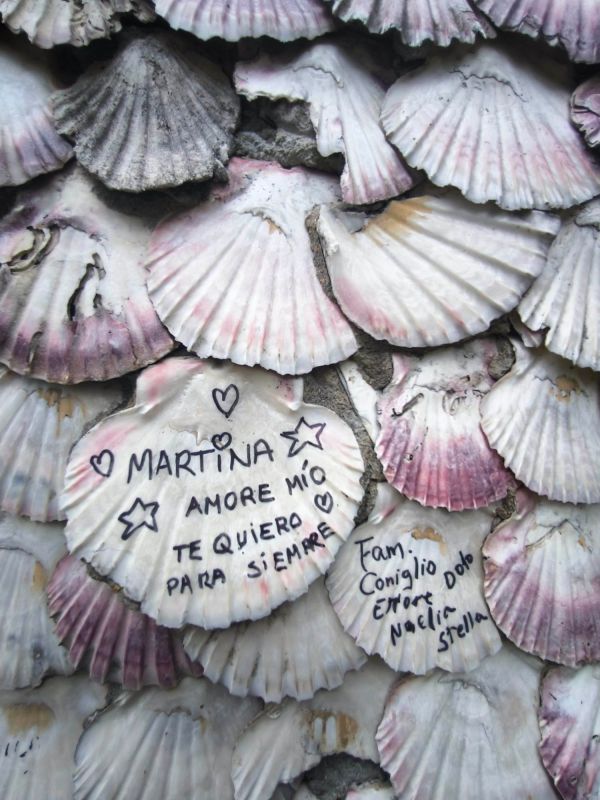 MARTINA
AMORE MÍO
TE QUIERO
PARA SIEMPRE
Fam.
Coniglio
Ettore Doto
Noelia
Stella